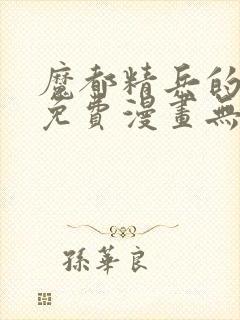 魔都精兵的
免費漫畫無
孫華良